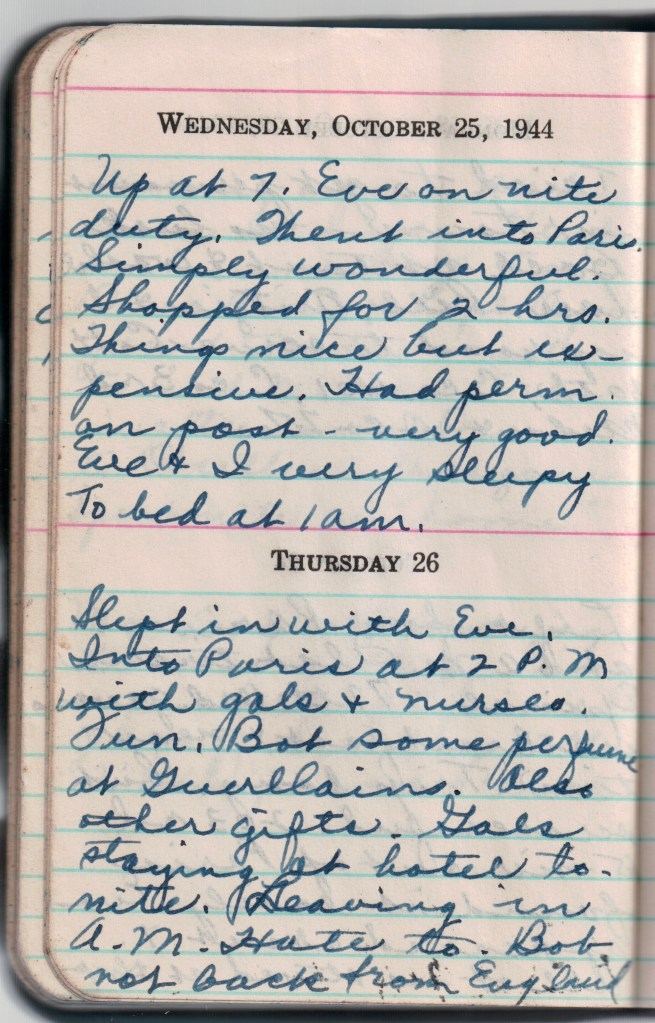 WEDNESDAY, OCTOBER 25, 1944
Up at 7. Eve on nite
duty. Went into Paris.
Simply wonderful.
Shopped for 2 hrs.
Things nice but ex-
pensive. Had perm.
on post - very good.
Eve & I very sleepy
To bed at 1 am.
THURSDAY 26
Slept in with Eve.
Into Paris at 2 P.M
with gals & nurses.
Fun. Bot some perfume
at Guerllains. Also
other gifts. Gals
staying at hotel to-
nite. Leaving in
A.M. Hate to. Bob
not back from England